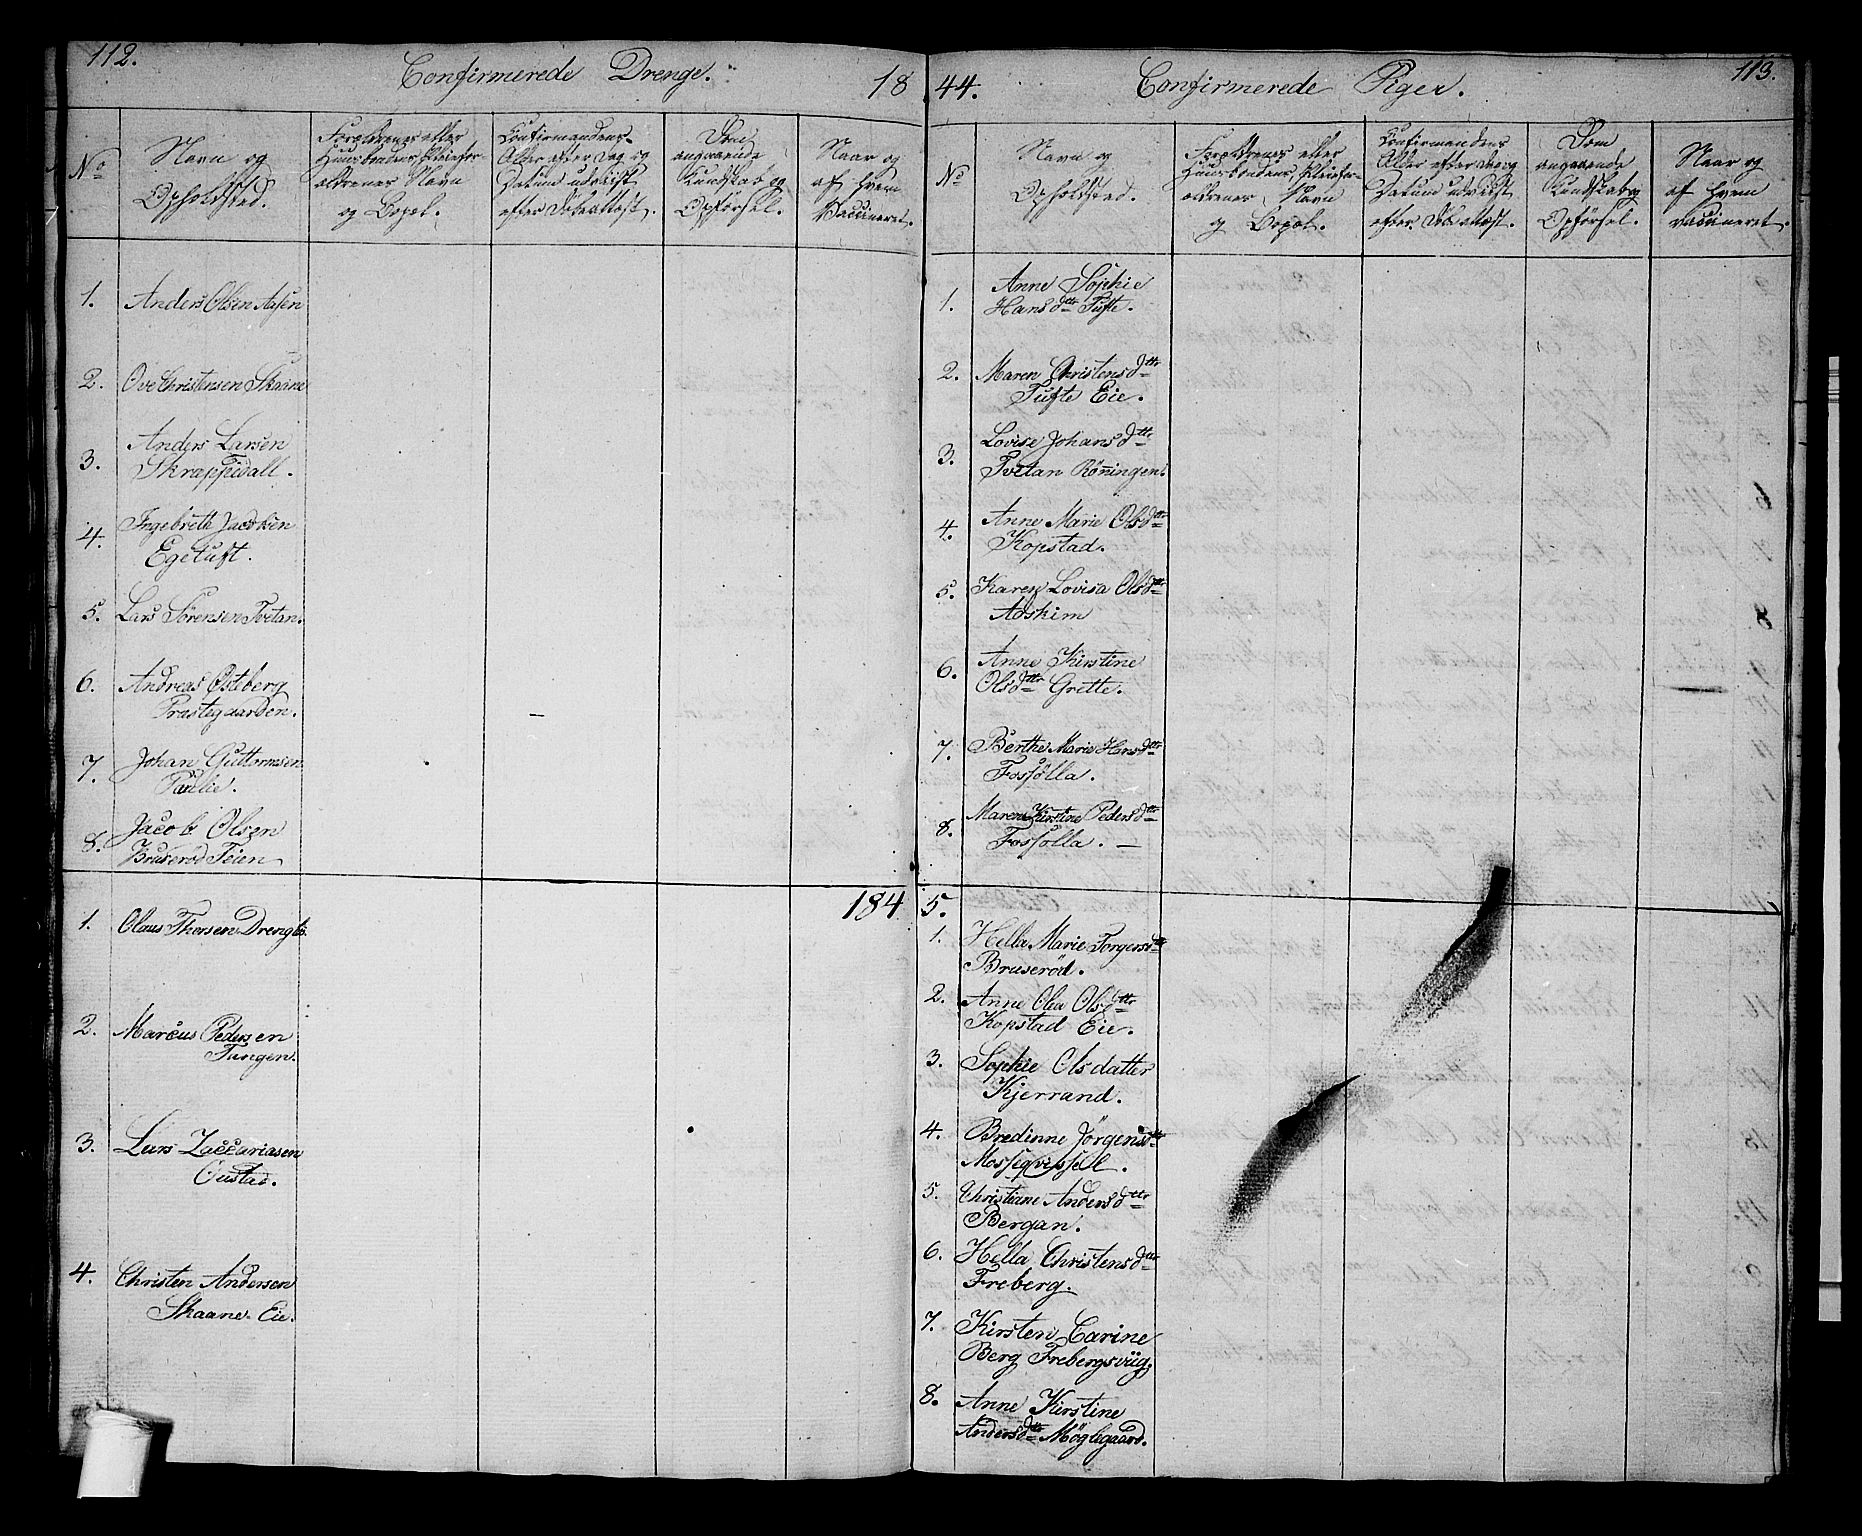 112.
Confirmerede Drenge.
18
No
Navn og
Opholdsted.
Forældrenes eller
Huusbondens, Pleiefor-
ældrenes Navn
og Bopel.
Confirmandens
Alder efter Dag og
Datum udviist
efter Døbeattest.
Dom
angaaende
Kundskab og
Opførsel.
Naar og
af hvem
Vaccineret.
1. Anders Olsen Aasen
2. Ove Christensen Skaane
3. Anders Larsen
Skrappedall.
4. Ingebreth Jacobsen
Egetuft.
5. Lars Sørensen Tvetan.
6. Andreas Østeberg
Præstegaarden.
7. Johan Guttormsen
Paulie.
8. Jacob Olsen
Bruserød Teien
184
1. Olaus Thorsen
2. Marcus Pedersen
Tangen.
3. Lars Zaccariasen
Oustad.
4. Christen Andersen
Skaane Eie.
44.
Confirmerede Piger.
113.
No
Navn og
Opholdsted.
Forældrenes eller
Huusbondens, Pleiefor-
ældrenes Navn
og Bopel.
Confirmandens
Alder efter Dag og
Datum udviist
efter Døbeattest.
Dom
angaaende
Kundskab og
Opførsel.
Naar og
af hvem
vaccineret.
1. Anne Sophie
Hansdttr Tufte.
2. Maren Christensdttr
Tufte Eie.
3. Lovise Johansdttr
Tvetan Röningen.
4. Anne Marie Olsdttr
Kopstad.
5. Karen Lovisa Olsdttr
Adskim
6. Anne Kirstine
Olsdttr Grette.
7. Berthe Marie Hansdttr
Fossölla.
8. Maren Kirstine Pedersdttr
Fossolla. —
5.
1. Hella Marie Torgersdttr
Bruseröd.
2. Anne Olea Olsdttr
Kopstad Eie.
3. Sophie Olsdatter
Kjerrand.
4. Bredinne Jörgensdttr
5. Christiane Andersdttr
Bergan.
6. Hella Christensdttr
Freberg.
7. Kirsten Carine
Berg Frebergsviig.
8. Anne Kirstine
Andersdttr Möglegaard.